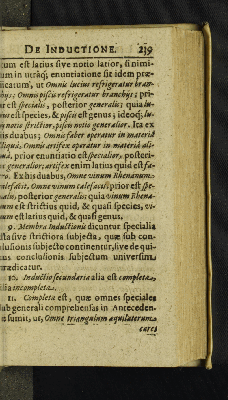 DE INDUCTIONE. 239
tum est latius sive notio latior, si nimi-
um in utrâq; enuntiatione sit idem præ-
icatum, ut Omnis lucius refrigeratur bran-
hus; Omnis piscis refrigeratur branchus; pri-
ur est specialis, posterior generalis; quia lu-
ius est species, & piscis est genus, ideoq; lu-
notio strictior, piscis notio generalior. Ita ex
is duabus; Omnis faber operatur in materiâ
liquâ, Omnis artifex operatur in materiâ ali-
uâ, prior enuntiatio est specialior, posteri-
generalior; artifex enim latius quid est fa-
ro. Ex his duabus, Omne vinum Rhenanum
calefacit, Omne vinum calefacit; prior est spe-
alis, posterior generalis: quia vinum Rhena-
um est strictius quid, & quasi species, vi-
um est latius quid, & quasi genus.
9. Membra Inductionis dicuntur specialia
sta sive strictiora subjecta, quæ sub con-
lusionis subjecto continentur, sive de qui-
us conclusionis subjectum universim
rædicatur.
10. Inductio secundaria alia est completa,
lia incompleta.
11. Completa est, quæ omnes speciales
ub generali comprehensas in Anteceden-
e sumit, ut, Omne triangulum æquilaterum
cure